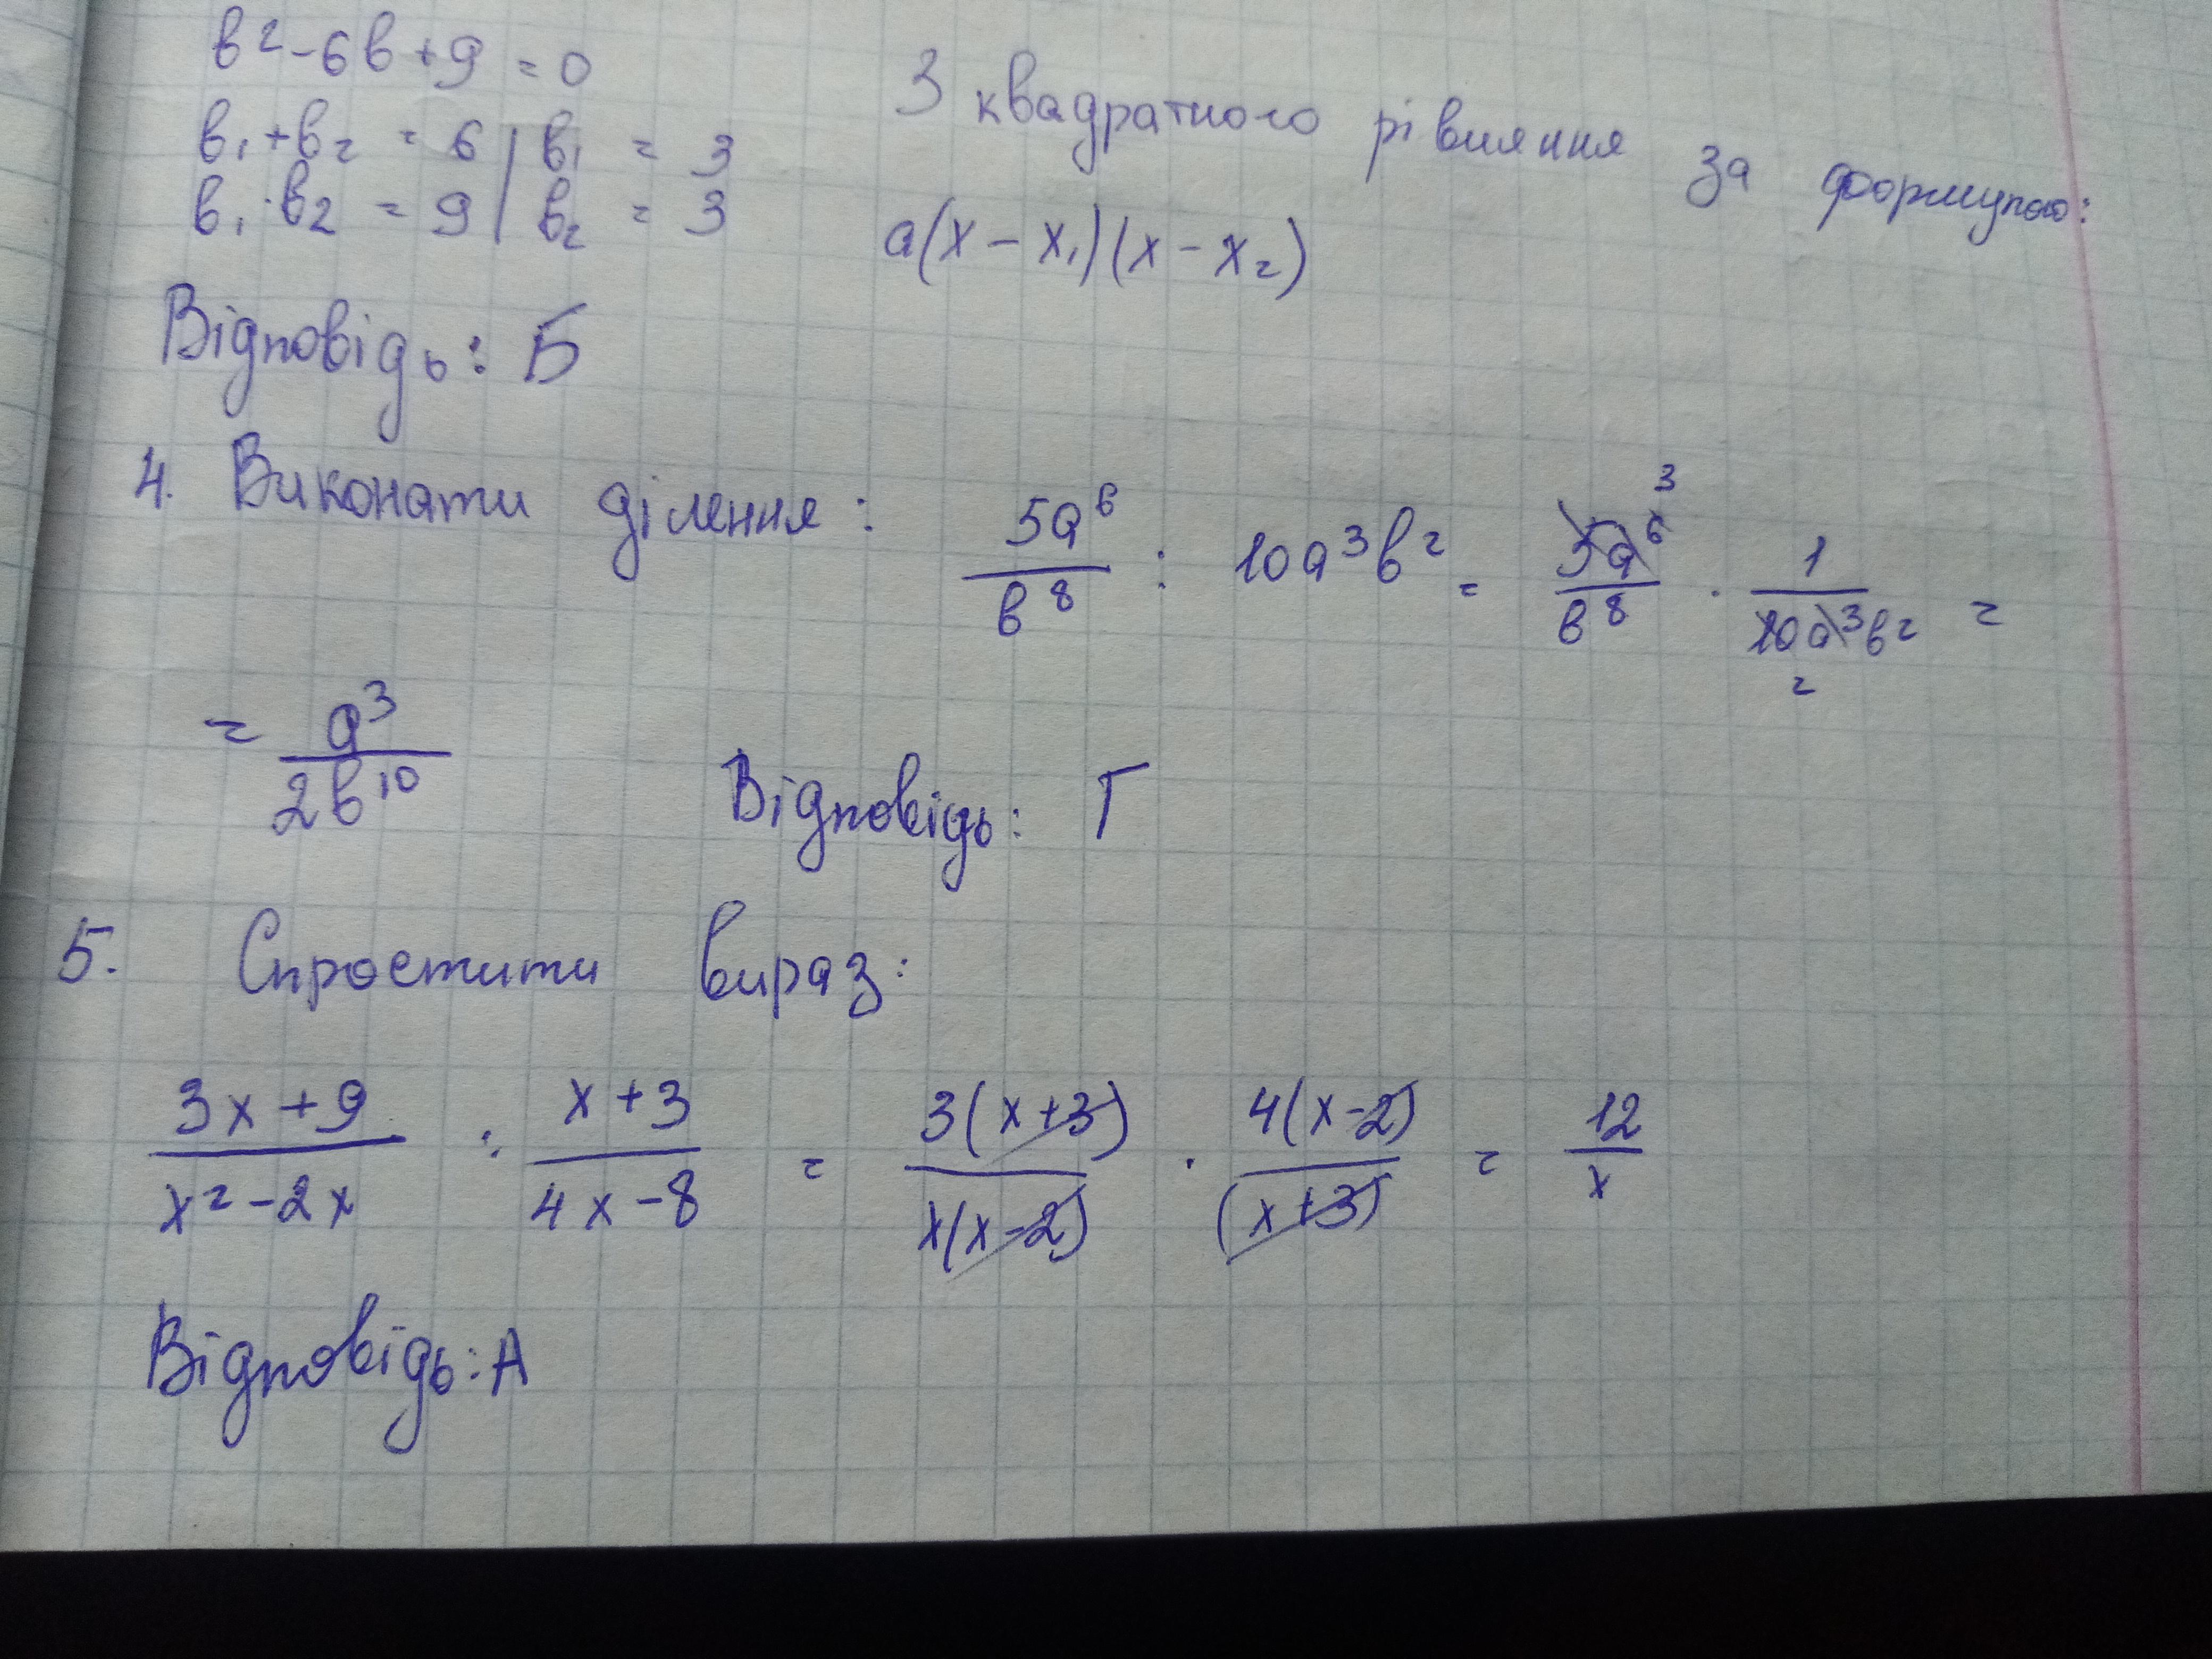 в² - 6в + 9 = 0
в₁ + в₂ = 6 | в₁ = 3
в₁ · в₂ = 9 | в₂ = 3
З квадратного рівняння за формулою:
a(x - x₁)(x - x₂)
Відповідь: Б
4. Виконати ділення: 5a⁶/в⁸ : 10a³в² = 5a⁶/в⁸ · 1/10a³в² =
3
2
= a³/2в¹⁰ Відповідь: Г
5. Спростити вираз:
3x + 9/x² - 2x : x + 3/4x - 8 = 3(x + 3)/x(x - 2) · 4(x - 2)/(x + 3) = 12/x
Відповідь: А